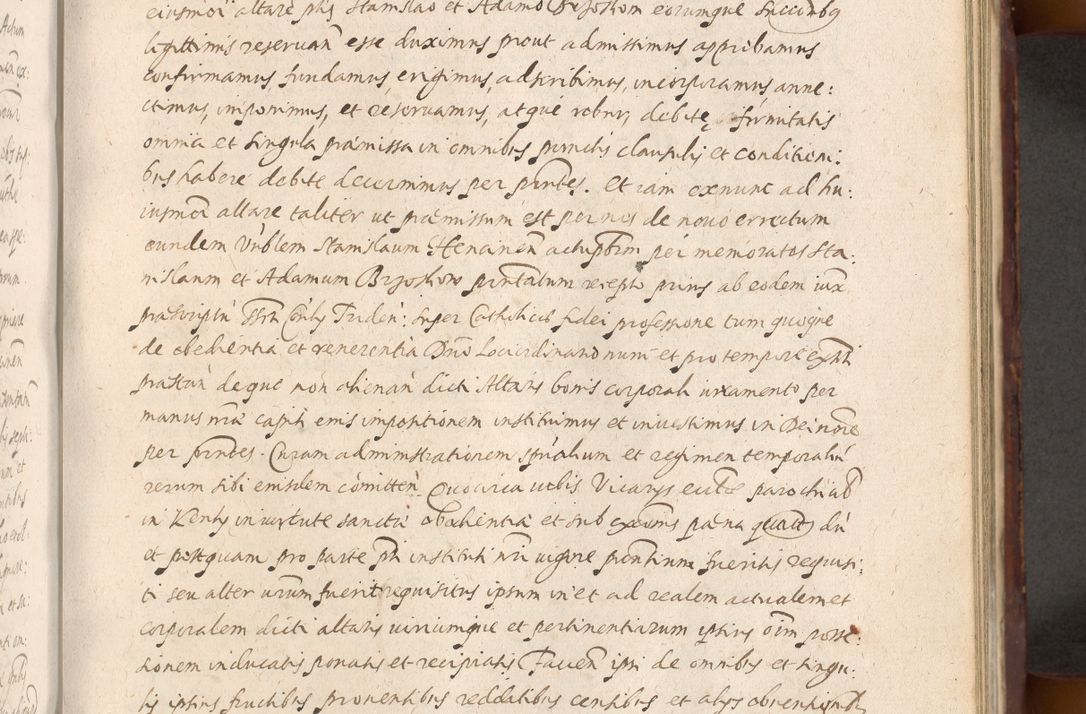 eiusmodi altare phs Stanislao et Adamo Brzoskom eorumque Succenbq
legittimis reseruan̄ esse duximus prout admittimus approbamus
confirmamus, fundamus, erigimus, adscribimus, incorporamus anne:
ctimus, imponimus, et reseruamus, atque robur debite firmitatis
omnia et singula præmissa in omnibus punctis clausulis et conditioni:
bus habere debite decernimus per pntes. Et iam exnunc ad hu:
iusmodi altare taliter ut præmissum est per nos de nouo erectum
eundem Vnblem Stanislaum Henainen actu pbrm per memoratos Sta:
nislaum et Adamum Brzoskow pntatum recepto prius ab eodem iux
præscriptū Conly Triden: super Catholicæ fidei professione tum quoque
de obedientia et reuerentia Dno Lociordinario nunc et pro tempore exnti
præstan̄ deque non alienan̄ dicti Altaris bonis corporali iuramento per
manus nræ capiti eius impositionem instituimus et inuestimus in Dei noie
per pntes. Curam administrationem spūalium et regimen temporaliū
rerum sibi eiusdem com̄itten̄ Quocirca vobis Vicarys eccle parochialib
in Kenty in uirtute sanctæ obedientiæ et sub excōis pæna quatt dū
et postquam pro parte ph instituti nri uigore pntium fueritis requisi:
ti seu alter urum fuerit requisitus ipsum in et ad realem actualem et
corporalem dicti altaris iuriumque et pertinentiarum ipsius oīm posse:
sionem inducatis ponatis et recipiatis Facien̄ ipsi de omnibus et singu:
lis ipsius fructibus prouentibus redditibus censibus et alys obuentionib